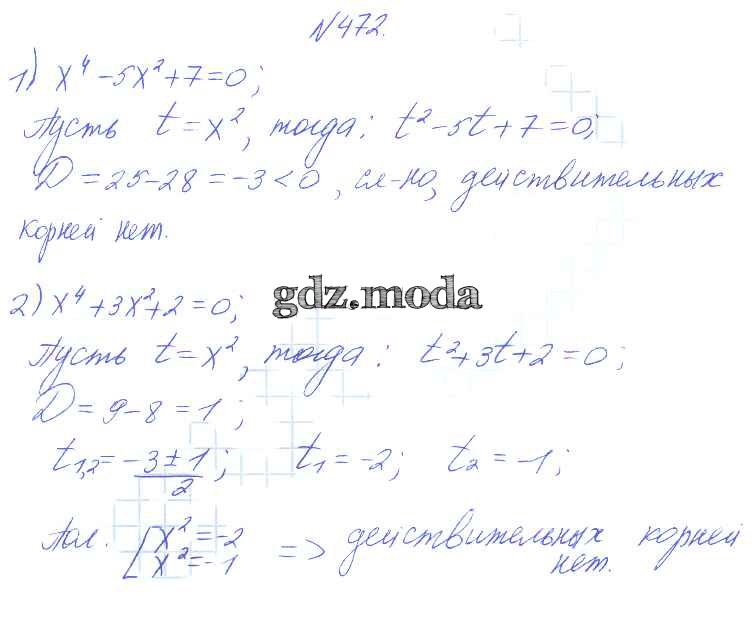 №472.
1) x⁴ - 5x² + 7 = 0;
Пусть t = x², тогда: t² - 5t + 7 = 0;
D = 25 - 28 = -3 < 0, сл-но, действительных
корней нет.
gdz.moda
2) x⁴ + 3x² + 2 = 0;
Пусть t = x², тогда: t² + 3t + 2 = 0;
D = 9 - 8 = 1;
t₁,₂ = (-3 ± 1)/2; t₁ = -2; t₂ = -1;
Пол. [x² = -2
x² = -1 => действительных корней
нет.